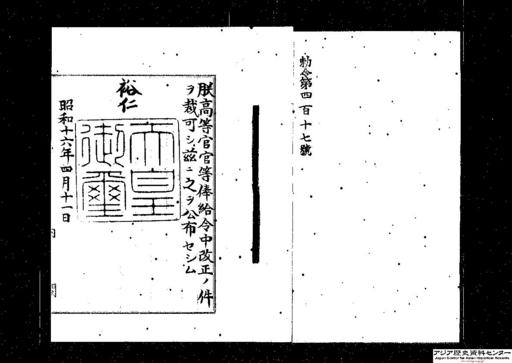 勅令第四百十七號
朕高等官官等俸給令中改正ノ件
ヲ裁可シ茲ニ之ヲ公布セシム
裕仁
天皇
御璽
昭和十六年四月十一日
内 閣
アジア歴史資料センター
Japan Center for Asian Historical Records